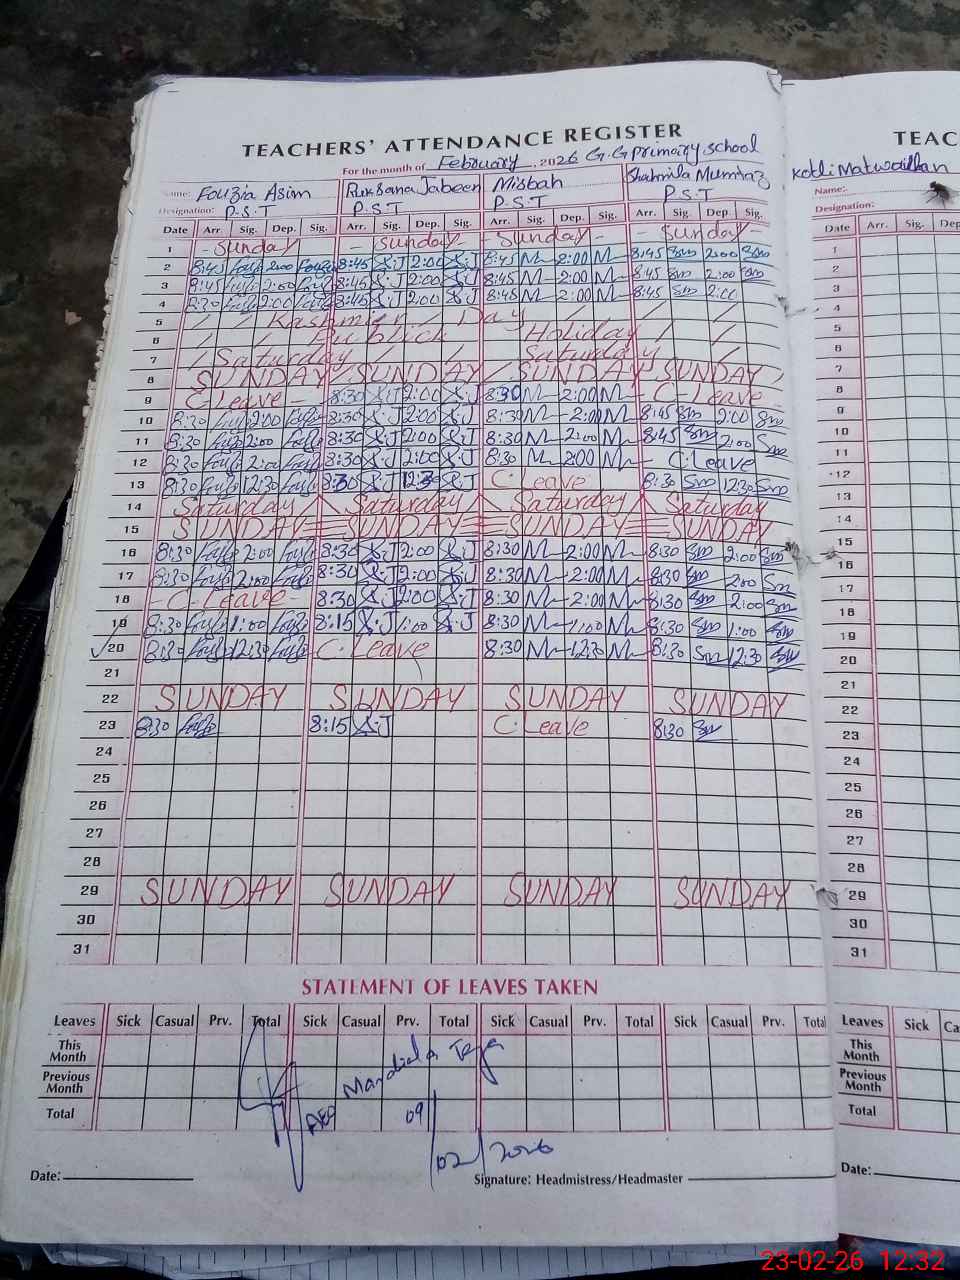 TEACHERS' ATTENDANCE REGISTER
For the month of February, 2026 G.G primary school
Kotli Matwaillan
Name: Fouzia Asim Ruksana Jabeen Misbah Shahmila Mumtaz
Designation: P.S.T P.S.T P.S.T P.S.T
Date Arr. Sig. Dep. Sig. Arr. Sig. Dep. Sig. Arr. Sig. Dep. Sig. Arr. Sig. Dep. Sig.
1 - Sunday - Sunday - - Sunday - - Sunday -
2 8:45 2:00 8:45 R.J 2:00 R.J 8:45 M 2:00 M 8:45 Sm 2:00 Sm
3 8:45 2:00 8:45 R.J 2:00 R.J 8:45 M 2:00 M 8:45 Sm 2:00 Sm
4 8:30 2:00 8:45 R.J 2:00 R.J 8:45 M 2:00 M 8:45 Sm 2:00
5 / / Kashmir / Day / / /
6 / / Publick Holiday / /
7 / Saturday / / / Saturday /
8 SUNDAY / SUNDAY / SUNDAY / SUNDAY /
9 C Leave - 8:30 R.J 2:00 R.J 8:30 M 2:00 M - C Leave -
10 8:30 2:00 8:30 R.J 2:00 R.J 8:30 M 2:00 M 8:45 Sm 2:00 Sm
11 8:30 2:00 8:30 R.J 2:00 R.J 8:30 M 2:00 M 8:45 Sm 2:00 Sm
12 8:30 2:00 8:30 R.J 2:00 R.J 8:30 M 2:00 M - C.Leave
13 8:30 12:30 8:30 R.J 12:30 R.J C Leave 8:30 Sm 12:30 Sm
14 Saturday Saturday Saturday Saturday
15 SUNDAY SUNDAY SUNDAY SUNDAY
16 8:30 2:00 8:30 R.J 2:00 R.J 8:30 M 2:00 M 8:30 Sm 2:00 Sm
17 8:30 2:00 8:30 R.J 2:00 R.J 8:30 M 2:00 M 8:30 Sm 2:00 Sm
18 - C. Leave - 8:30 R.J 2:00 R.J 8:30 M 2:00 M 8:30 Sm 2:00 Sm
19 8:30 1:00 8:15 R.J 1:00 R.J 8:30 M 1:00 M 8:30 Sm 1:00 Sm
20 8:30 12:30 C. Leave 8:30 M 12:30 M 8:30 Sm 12:30 Sm
21
22 SUNDAY SUNDAY SUNDAY SUNDAY
23 8:30 8:15 R.J C. Leave 8:30 Sm
24
25
26
27
28
29 SUNDAY SUNDAY SUNDAY SUNDAY
30
31
STATEMENT OF LEAVES TAKEN
Leaves Sick Casual Prv. Total Sick Casual Prv. Total Sick Casual Prv. Total Sick Casual Prv. Total
This Month
Previous Month
Total
AEO Mandiala Tega
09/02/2026
Date:
Signature: Headmistress/Headmaster
TEAC
Name:
Designation:
Date Arr. Sig. Dep
1
2
3
4
5
6
7
8
9
10
11
12
13
14
15
16
17
18
19
20
21
22
23
24
25
26
27
28
29
30
31
Leaves Sick Ca
This Month
Previous Month
Total
Date:
23-02-26 12:32